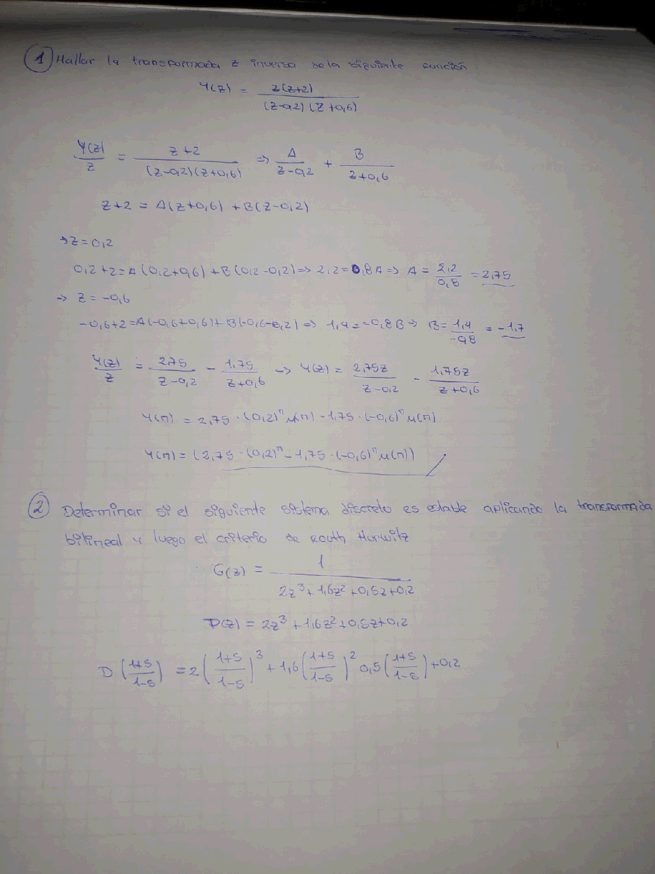 1 Hallar la transformada z inversa de la siguiente función
Y(z) = z(z+2) / (z-0,2)(z+0,6)
Y(z)/z = z+2 / (z-0,2)(z+0,6) => A / z-0,2 + B / z+0,6
z+2 = A(z+0,6) + B(z-0,2)
→ z=0,2
0,2+2=A(0,2+0,6)+B(0,2-0,2) => 2,2=0,8A => A = 2,2/0,8 = 2,75
=> z = -0,6
-0,6+2=A(-0,6+0,6)+B(-0,6-0,2) => 1,4=-0,8B => B= 1,4/-0,8 = -1,7
Y(z)/z = 2,75 / z-0,2 - 1,75 / z+0,6 → Y(z) = 2,75z / z-0,2 - 1,75z / z+0,6
Y(n) = 2,75·(0,2)ⁿ u(n) - 1,75·(-0,6)ⁿ u(n)
Y(n) = (2,75·(0,2)ⁿ - 1,75·(-0,6)ⁿ u(n))
2 Determinar si el siguiente sistema discreto es estable aplicando la transformada
bilineal y luego el criterio de Routh Hurwitz
G(z) = 1 / 2z³+1,6z²+0,5z+0,2
D(z) = 2z³+1,6z²+0,5z+0,2
D(1+s/1-s) = 2(1+s/1-s)³ + 1,6(1+s/1-s)² 0,5(1+s/1-s)+0,2